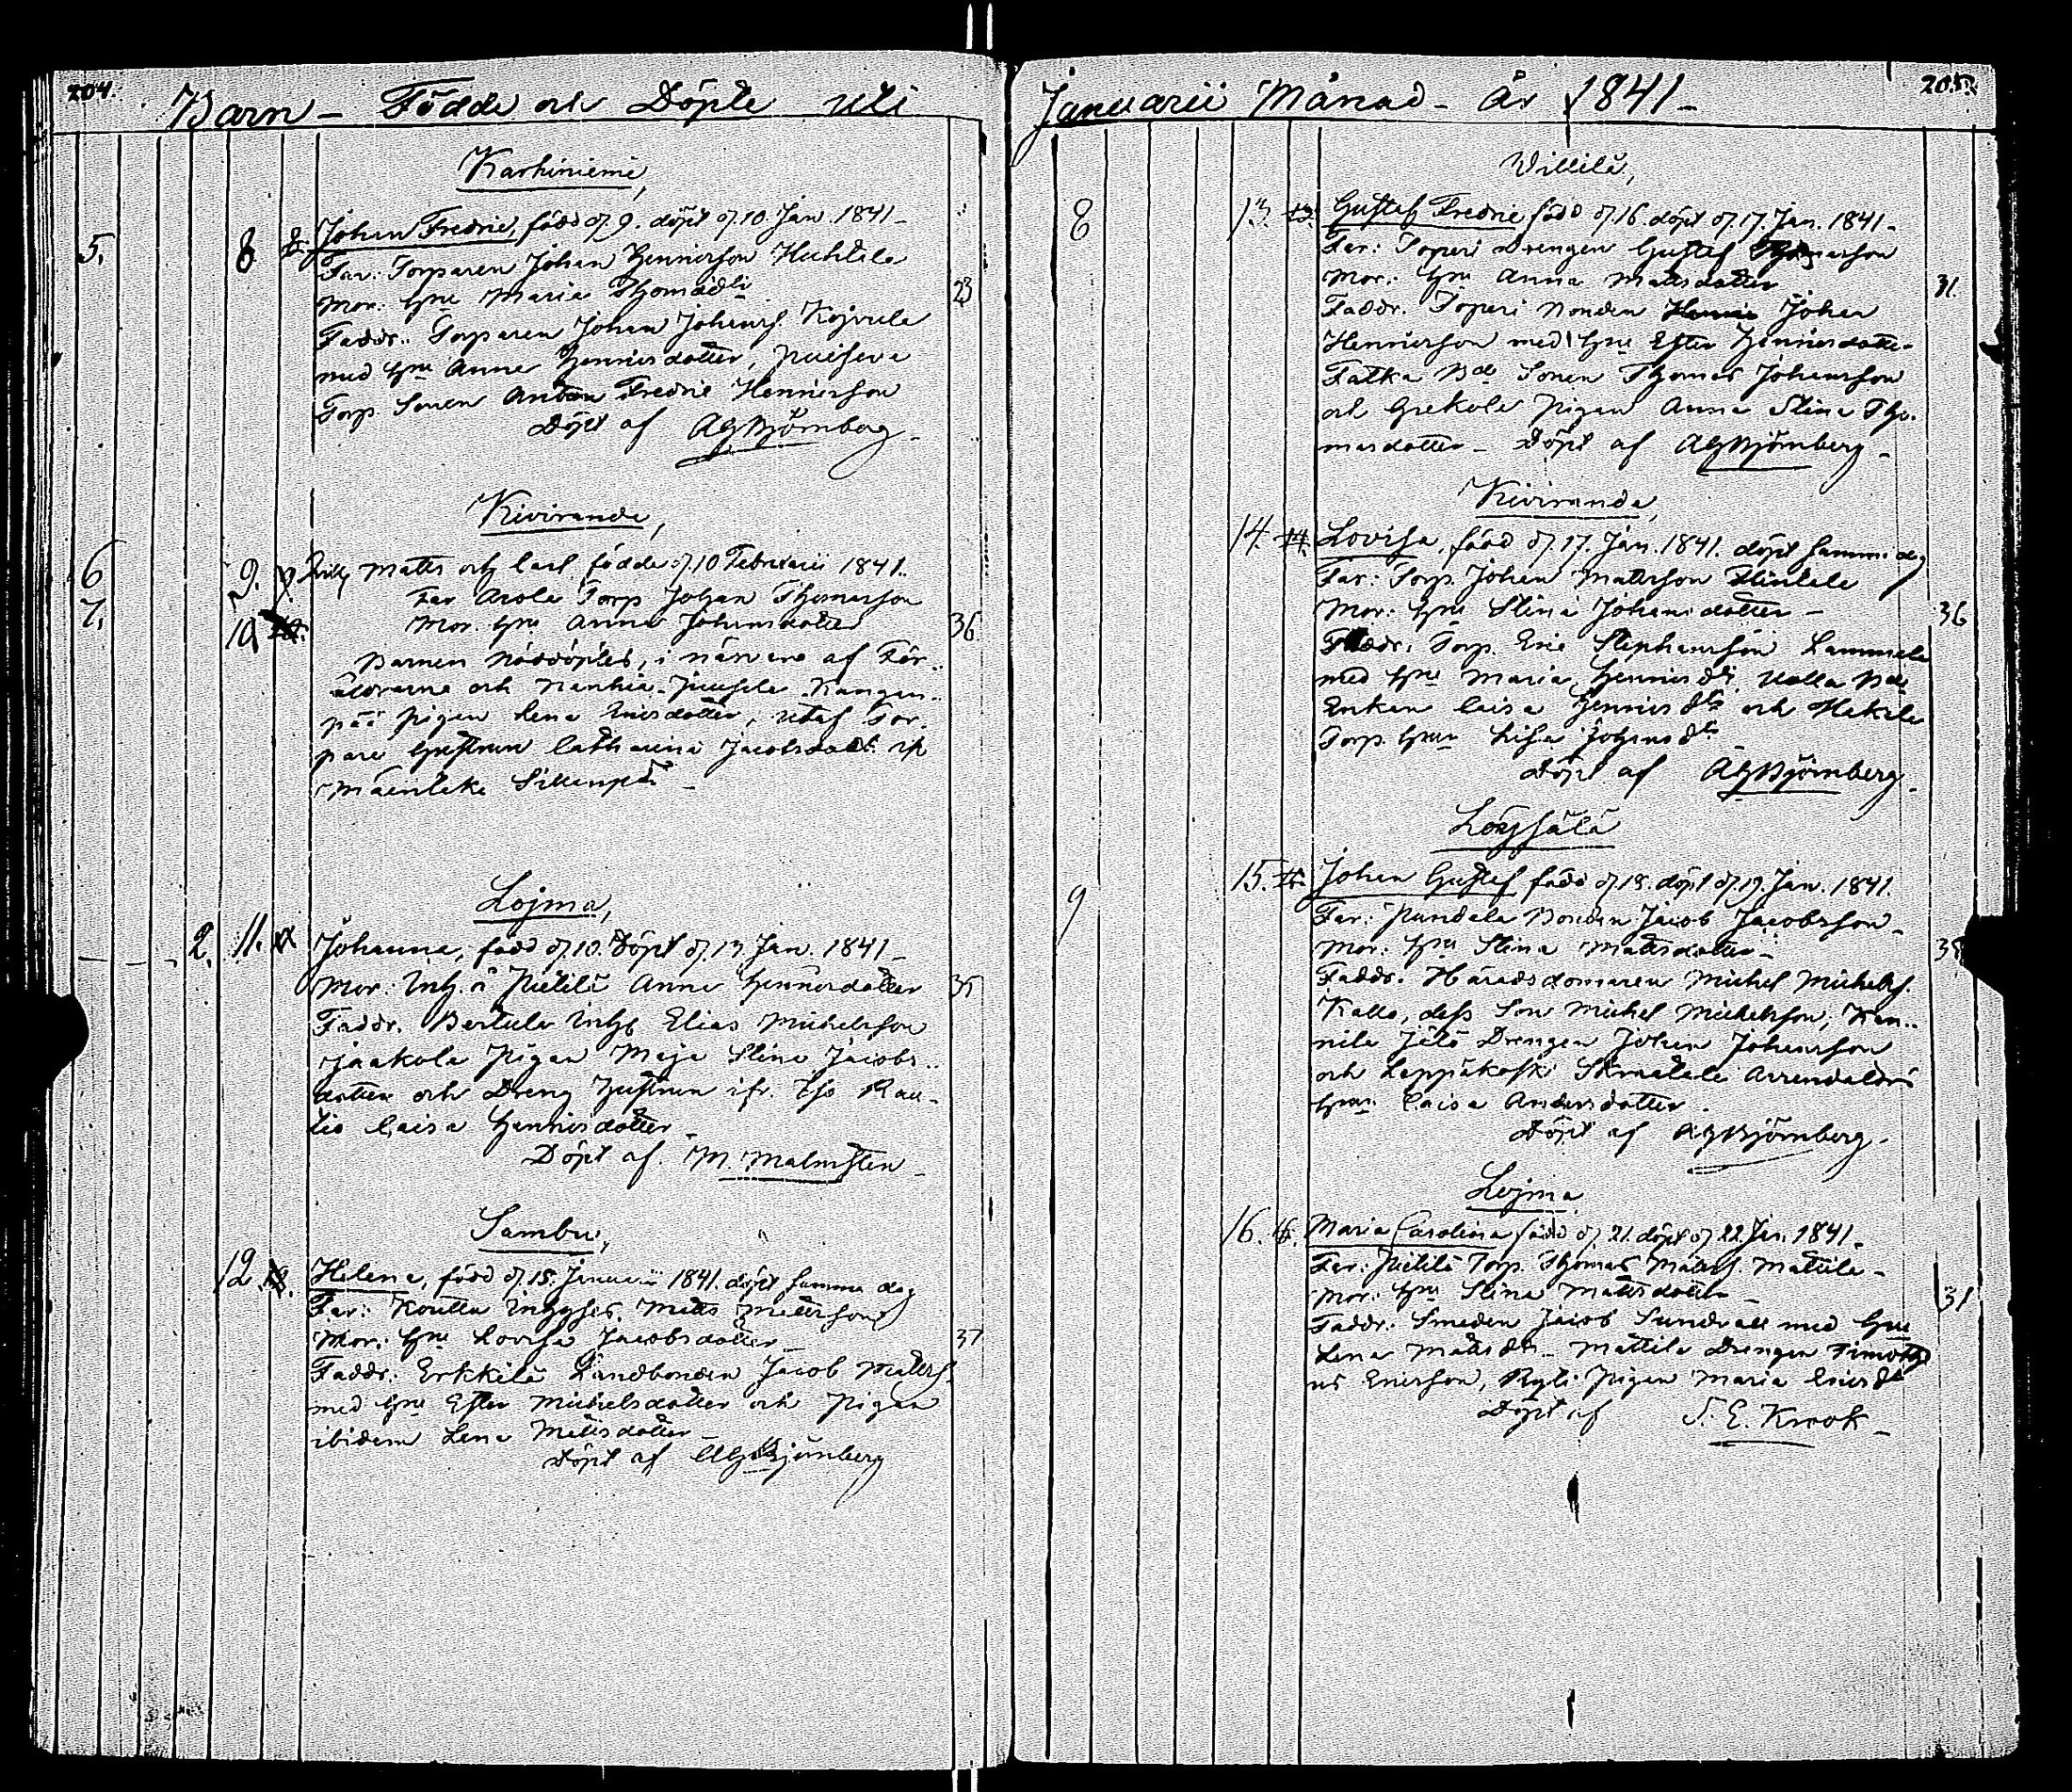 204.
Barn – Födde och Döpte uti
Karhiniemi,
5. 8 8. Johan Fredric, född d. 9. döpt d. 10. Jan. 1841 –
Far: Torparen Johan Henricsson Huhtala
Mor: Hnu Maria Thomædtr 23
Faddr: Torparen Johan Johanss.
med Hnu Anna Henricsdotter,
Torp. Sonen Fredric Henricsson
Döpt af AGBjörnberg –
Kiviranda,
6 9. 9. Mats och Carl födde d. 10 Februarii 1841.
7. 10 10. Far Arola Torp Johan Thomasson
Mor. Hnu Anna Johansdotter 36
Barnen nöddöptes, i närvaro af För-
äldrarne och Kangan-
pää Pigan Lena Ericsdotter, utaf Tor-
pare Hustrun Catharina Jacobsdott.

Lojma,
2. 11. Johanna, född d. 10. Döpt d. 13 Jan. 1841 –
Mor: Inh. å Pietilä Anna Henricsdotter 35
Faddr. Bertula Inhs Elias Michelsson
Jaakola Pigan Maja Stina Jacobs-
dotter och Dreng Hustrun ifr. Rau-
tio Caisa Henricsdotter –
Döpt af. M. Malmsten –
Sambu,
12. Helena, född d. 15. Januarii 1841. döpt samma dag
Far: Koutta Inhyses. Matts Mattsson
Mor: Hnu Lovisa Jacobsdotter – 37
Faddr: Erkkilä Landbonden Jacob Mattss.
med Hnu Ester Michelsdotter och Pigan
ibidem Lena Mattsdotter –
Döpt af AGBjörnberg
Januarii Månad – År 1841 –
205.
Villilä,
8 13. 13. Gustaf Fredric född d. 16. döpt d. 17. Jan. 1841 –
Far: Soperi Drengen Gustaf Thomasson
Mor: Hnu Anna Mattsdotter 31.
Faddr. Soperi Bonden Johan
Henricsson med Hnu Ester Henricsdotter
Fatka Bde Sonen Thomas Johansson
och Grekola Pigan Anna Stina Tho-
masdotter – Döpt af AGBjörnberg –
Kiviranda,
14. 14. Lovisa, född d. 17. Jan. 1841. döpt samm. dag
Far: Torp. Johan Mattsson
Mor: Hnu Stina Johansdotter – 36
Faddr. Torp. Eric Stephansson Lammela
med Hnu Maria Henricsdtr. Ualla Bde
Enkan Caisa Henricsdtr och Hakala
Torp. Hnu Lisa Johansdtr
Döpt af AGBjörnberg –
Löysälä
9 15. Johan Gustaf född d. 18. döpt d. 19. Jan. 1841.
Far: Pundala Bonden Jacob Jacobsson –
Mor: Hnu Stina Mattsdotter –
Faddr. Häradsdomaren Michel Michelss.
Kallo, dess Son Michel Michelsson, Kan-
nila Jälö Drengen Johan Johansson
och Leppäkoski
Hnu Caisa Andersdotter.
Döpt af AGBjörnberg –
Lojma
16. 16. Maria Carolina född d. 21. döpt d. 22. Jan. 1841 –
Far: Pietilä Torp. Thomas Mattss. Mattila –
Mor: Hnu Stina Mattsdotter – 31
Faddr: Smeden Jacob Sundvall med Hnu
Lena Mattsdtr. – Mattila Drengen Timothe-
us Ericsson, Ryti Pigan Maria Ericsdtr
Döpt af S. E. Krook –